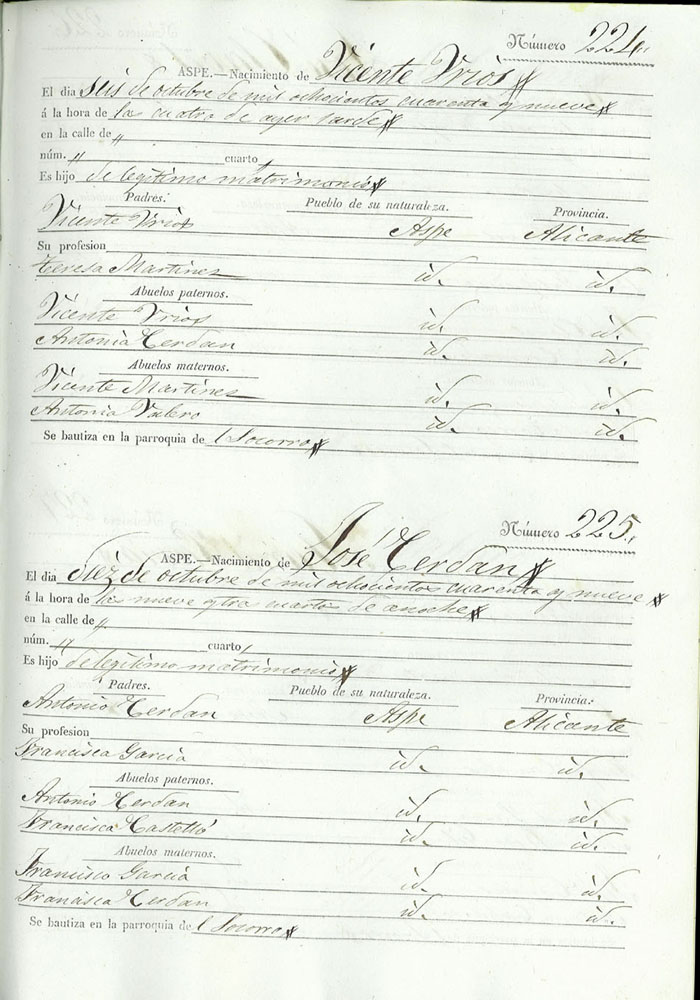 Número 224
ASPE.—Nacimiento de Vicente Vrios
El dia seis de octubre de mil ochocientos cuarenta y nueve
á la hora de las cuatro de ayer tarde
en la calle de "
núm. " cuarto
Es hijo de legitimo matrimonio
Padres. Pueblo de su naturaleza. Provincia.
Vicente Vrios Aspe Alicante
Su profesion
Teresa Martinez id. id.
Abuelos paternos.
Vicente Vrios id. id.
Antonia Cerdan id. id.
Abuelos maternos.
Vicente Martinez id. id.
Antonia Valero id. id.
Se bautiza en la parroquia de l Socorro
Número 225
ASPE.—Nacimiento de José Cerdan
El dia diez de octubre de mil ochocientos cuarenta y nueve
á la hora de las nueve y tres cuartos de anoche
en la calle de "
núm. " cuarto
Es hijo de legitimo matrimonio
Padres. Pueblo de su naturaleza. Provincia.
Antonio Cerdan Aspe Alicante
Su profesion
Francisca Garcia id. id.
Abuelos paternos.
Antonio Cerdan id. id.
Francisca Castelló id. id.
Abuelos maternos.
Francisco Garcia id. id.
Francisca Cerdan id. id.
Se bautiza en la parroquia de l Socorro